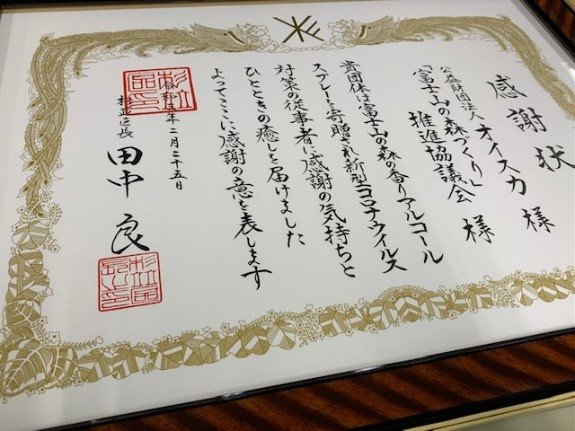 感謝状
公益財団法人オイスカ 様
「富士山の森づくり」
推進協議会 様
貴団体は富士山の森の香りアルコール
スプレーを寄贈され新型コロナウイルス
対策の従事者に感謝の気持ちと
ひとときの癒しを届けました
よってここに感謝の意を表します
年二月二十五日
杉並区長 田中 良